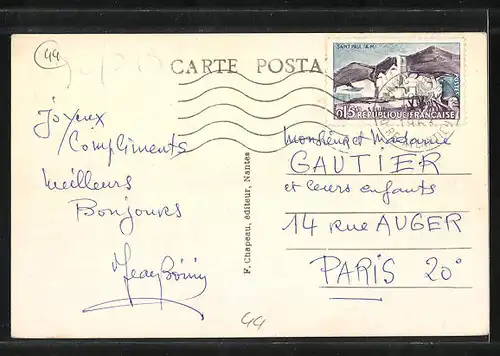 44
CARTE POSTA
SAINT PAUL
0,15
RÉPUBLIQUE FRANÇAISE
POSTES
Joyeux
Compliments
Meilleurs
Bonjours
F. Chapeau, éditeur, Nantes
Monsieur et Madame
GAUTIER
et leurs enfants
14 rue AUGER
PARIS 20°
44